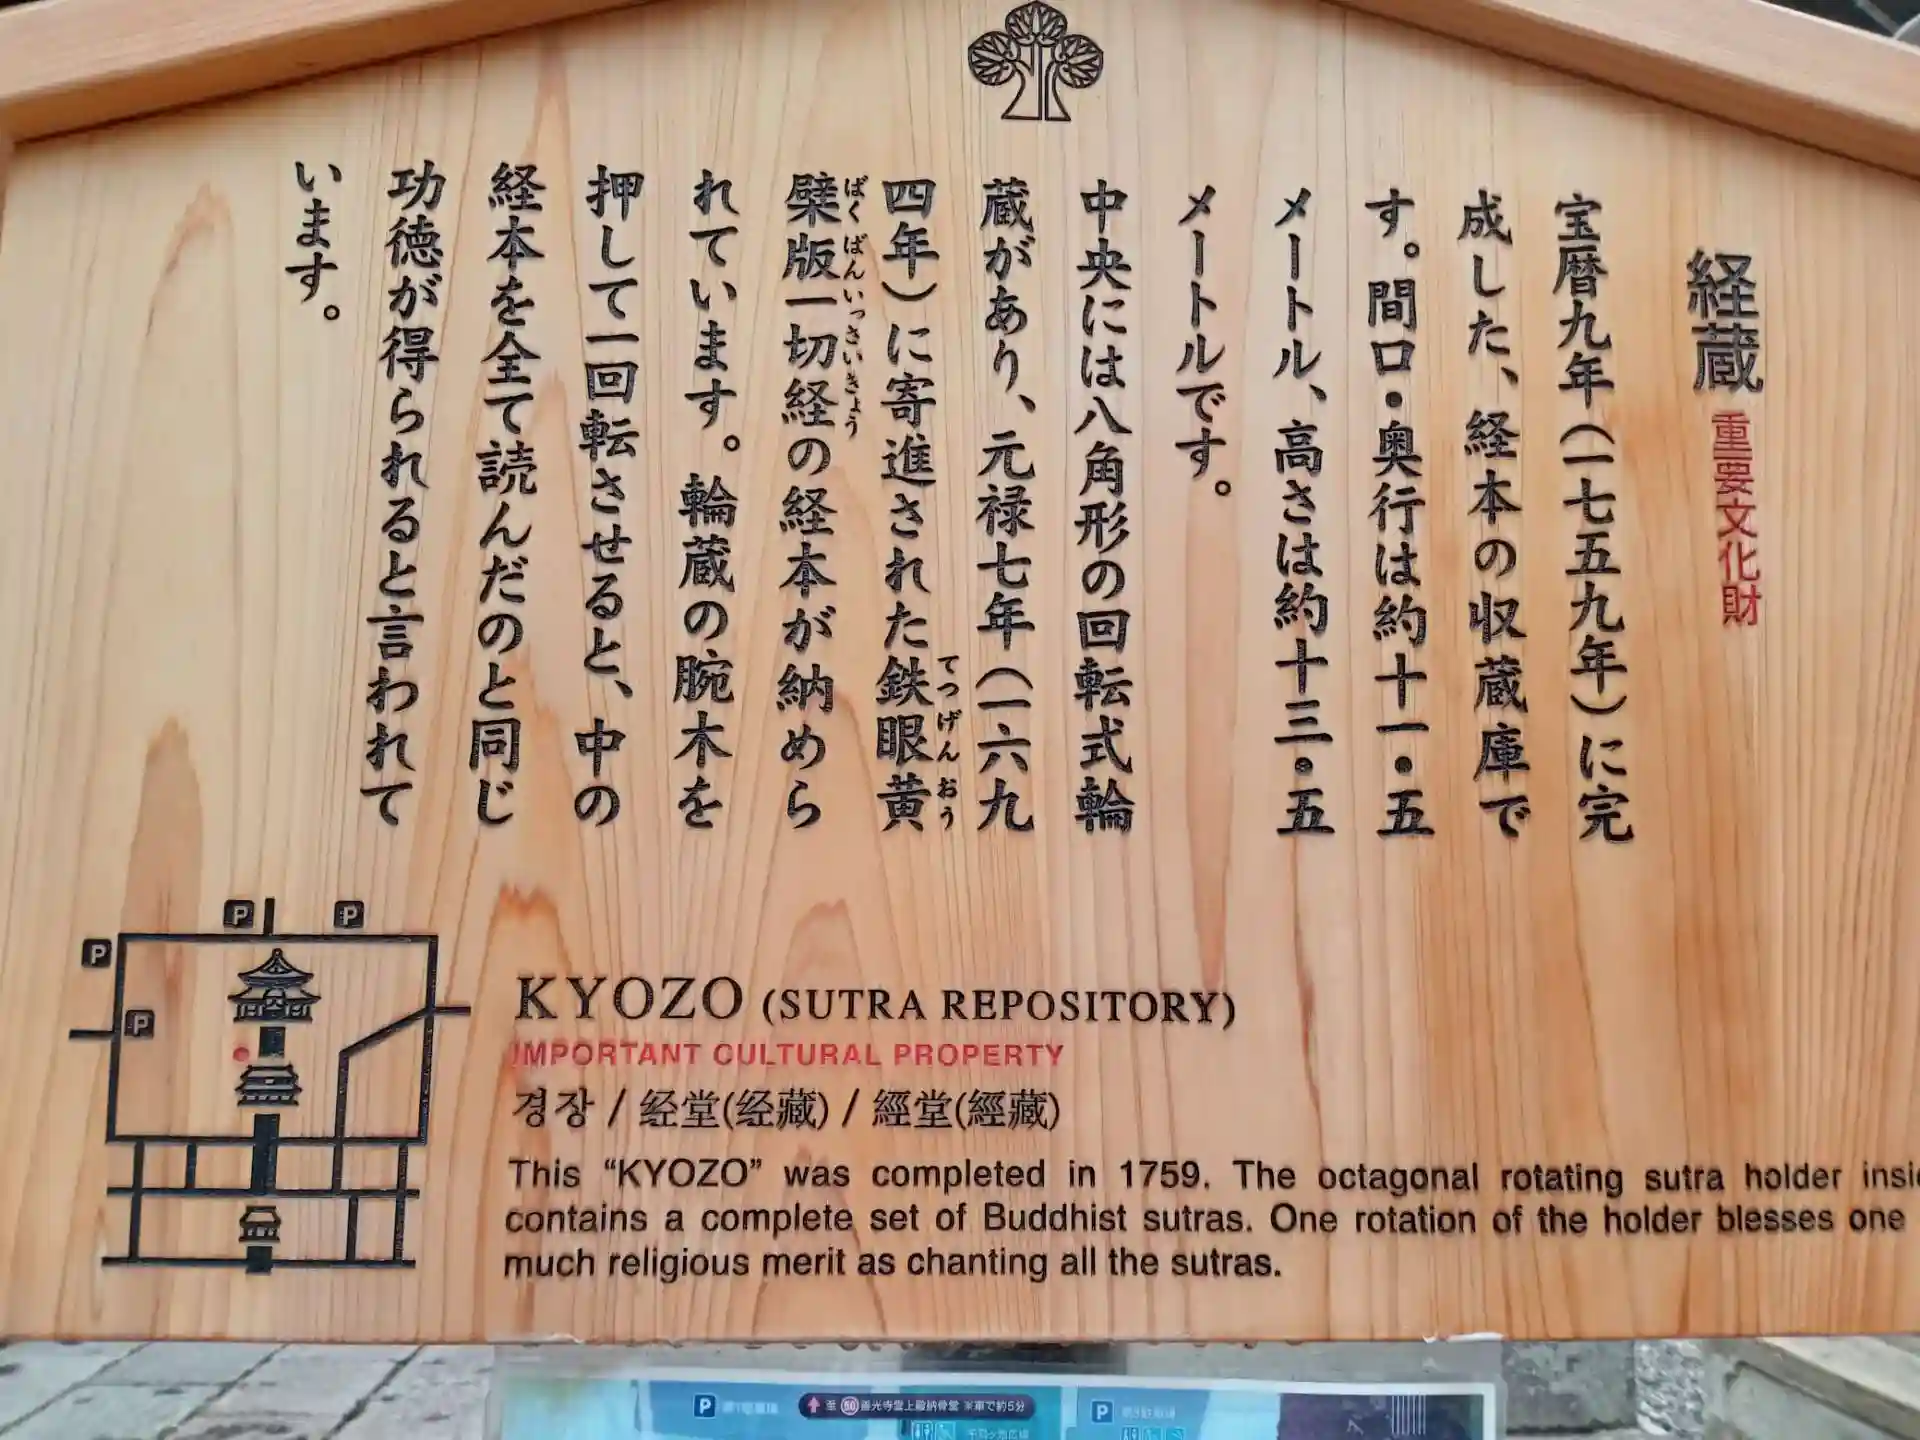 経蔵 重要文化財
宝暦九年(一七五九年)に完
成した、経本の収蔵庫で
す。間口・奥行は約十一・五
メートル、高さは約十三・五
メートルです。
中央には八角形の回転式輪
蔵があり、元禄七年(一六九
四年)に寄進された鉄眼黄
てつげんおう
檗版一切経の経本が納めら
ばくばんいっさいきょう
れています。輪蔵の腕木を
押して一回転させると、中の
経本を全て読んだのと同じ
功徳が得られると言われて
います。
P P
P
P
KYOZO (SUTRA REPOSITORY)
IMPORTANT CULTURAL PROPERTY
경장 / 经堂(经藏) / 經堂(經藏)
This “KYOZO” was completed in 1759. The octagonal rotating sutra holder
contains a complete set of Buddhist sutras. One rotation of the holder blesses one
much religious merit as chanting all the sutras.
P 至 50 善光寺雲上殿納骨堂 ※車で約5分 P